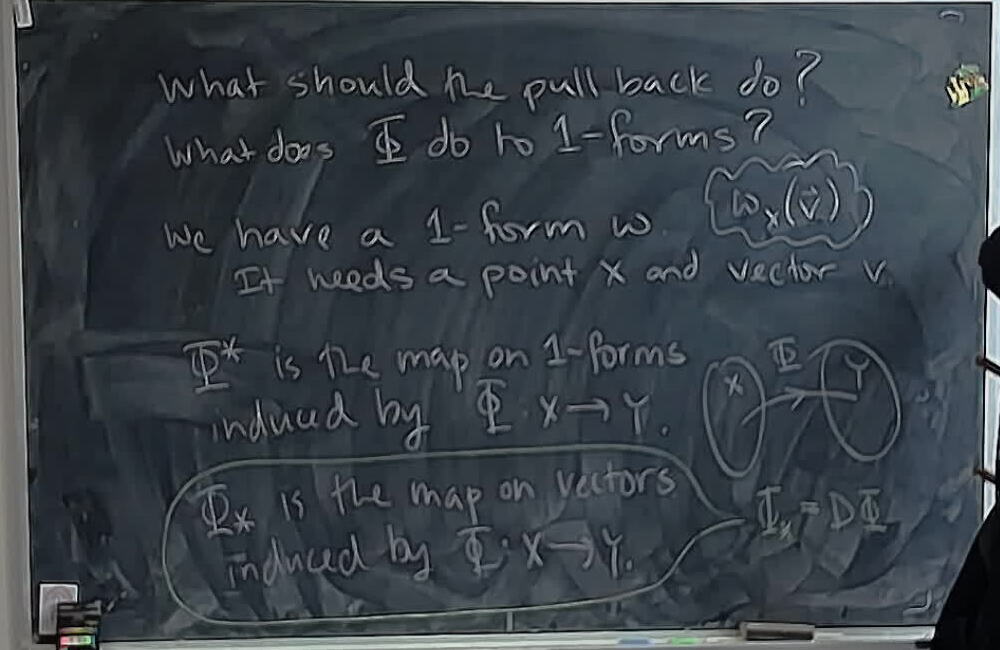 What should the pull back do?
What does Φ do to 1-forms?
We have a 1-form ω.
ω_x(v⃗)
It needs a point x and vector v.
Φ* is the map on 1-forms
induced by Φ: X→Y.
X Φ Y
Φ_* is the map on vectors
induced by Φ: X→Y.
Φ_* = DΦ